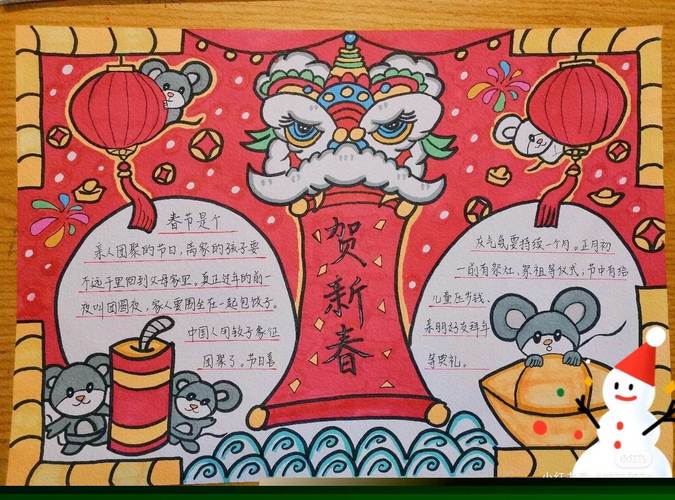 春节是个
亲人团聚的节日,离家的孩子要
不远千里回到父母家里。真正过年的前一
夜叫团圆夜,家人要围坐在一起包饺子。
中国人因饺子象征
团聚了。节日喜
贺新春
庆气氛要持续一个月。正月初
一前有祭灶、祭祖等仪式,节中有给
儿童压岁钱、
亲朋好友拜年
等典礼。